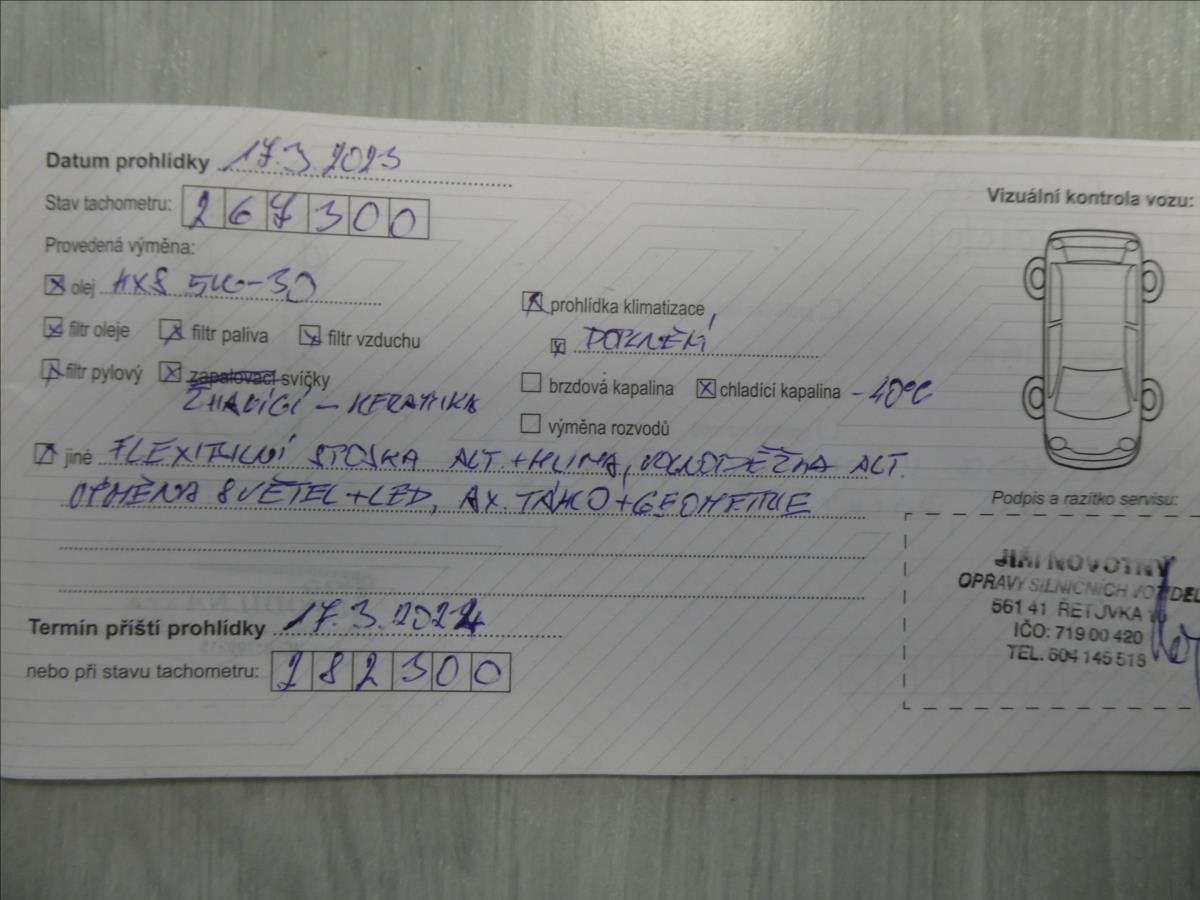 Datum prohlídky 17.3.2023
Stav tachometru: 267300
Provedená výměna:
olej HX8 5W-30
filtr oleje filtr paliva filtr vzduchu
filtr pylový zapalovací svíčky
ŽHAVÍCÍ - KERAMIKA
prohlídka klimatizace
DOPLNĚNÍ
brzdová kapalina chladící kapalina -40°C
výměna rozvodů
jiné ALT. + ALT.
SVĚTEL + LED, AX. TÁHLO + GEOMETRIE
Termín příští prohlídky 17.3.2024
nebo při stavu tachometru: 282300
Vizuální kontrola vozu:
Podpis a razítko servisu:
JIŘÍ NOVOTNÝ
OPRAVY SILNIČNÍCH VOZIDEL
561 41 ŘETŮVKA
IČO: 719 00 420
TEL. 604 145 518